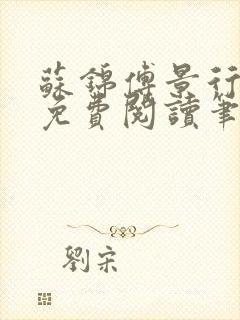 蘇錦傅景行
免費閱讀筆
劉宋